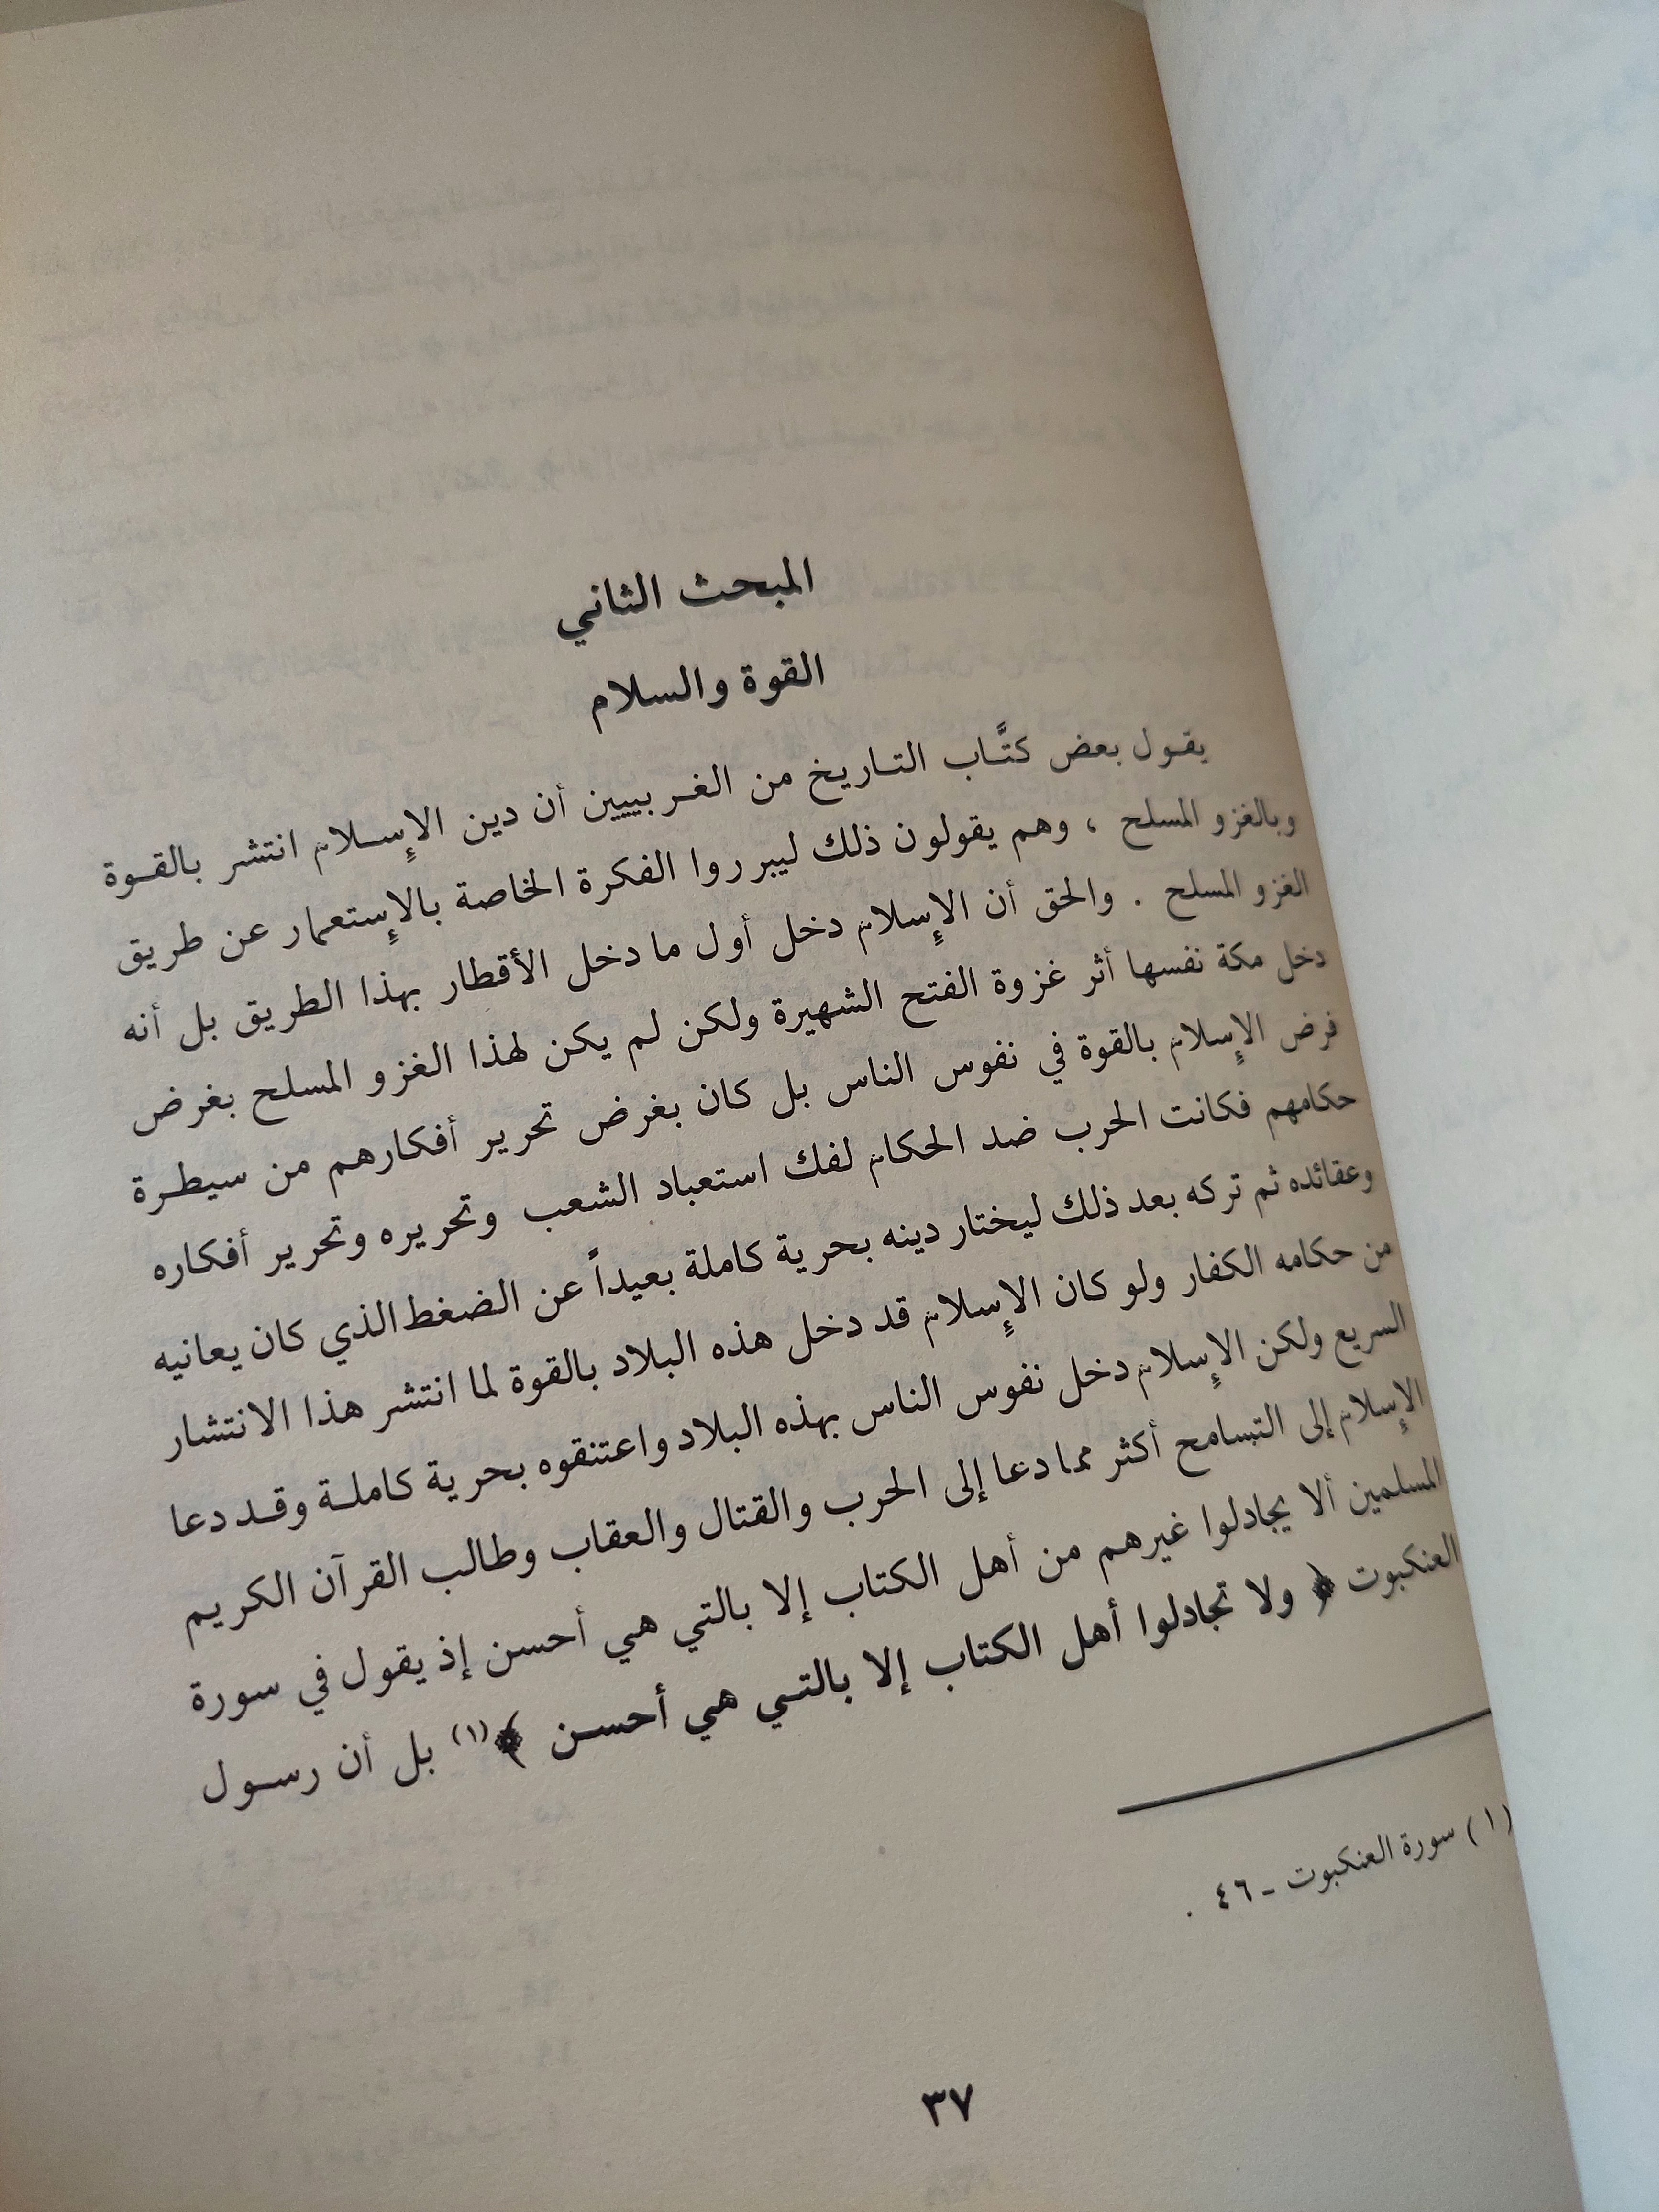 المبحث الثاني
القوة والسلام
يقـول بعض كتَّـاب التـاريخ من الغـربييين أن دين الإسـلام انتشر بالقـوة
وبالغزو المسلح ، وهم يقولون ذلك ليبرروا الفكرة الخاصة بالإستعمار عن طريق
الغزو المسلح . والحق أن الإسلام دخل أول ما دخل الأقطار بهذا الطريق بل أنه
دخل مكة نفسها أثر غزوة الفتح الشهيرة ولكن لم يكن لهذا الغزو المسلح بغرض
فرض الإسلام بالقوة في نفوس الناس بل كان بغرض تحرير أفكارهم من سيطـرة
حكامهم فكانت الحرب ضد الحكام لفك استعباد الشعب وتحريره وتحرير أفكاره
وعقائده ثم تركه بعد ذلك ليختار دينه بحرية كاملة بعيداً عن الضغط الذي كان يعانيه
من حكامه الكفار ولو كان الإسلام قد دخل هذه البلاد بالقوة لما انتشر هذا الانتشار
السريع ولكن الإسلام دخل نفوس الناس بهذه البلاد واعتنقوه بحرية كاملـة وقـد دعا
الإسلام إلى التسامح أكثر مما دعا إلى الحرب والقتال والعقاب وطالب القرآن الكريم
المسلمين ألا يجادلوا غيرهم من أهل الكتاب إلا بالتي هي أحسن إذ يقول في سورة
العنكبوت ﴿ ولا تجادلوا أهل الكتاب إلا بالتـي هي أحسـن ﴾(١) بل أن رسـول
(١) سورة العنكبوت - ٤٦ .
٣٧